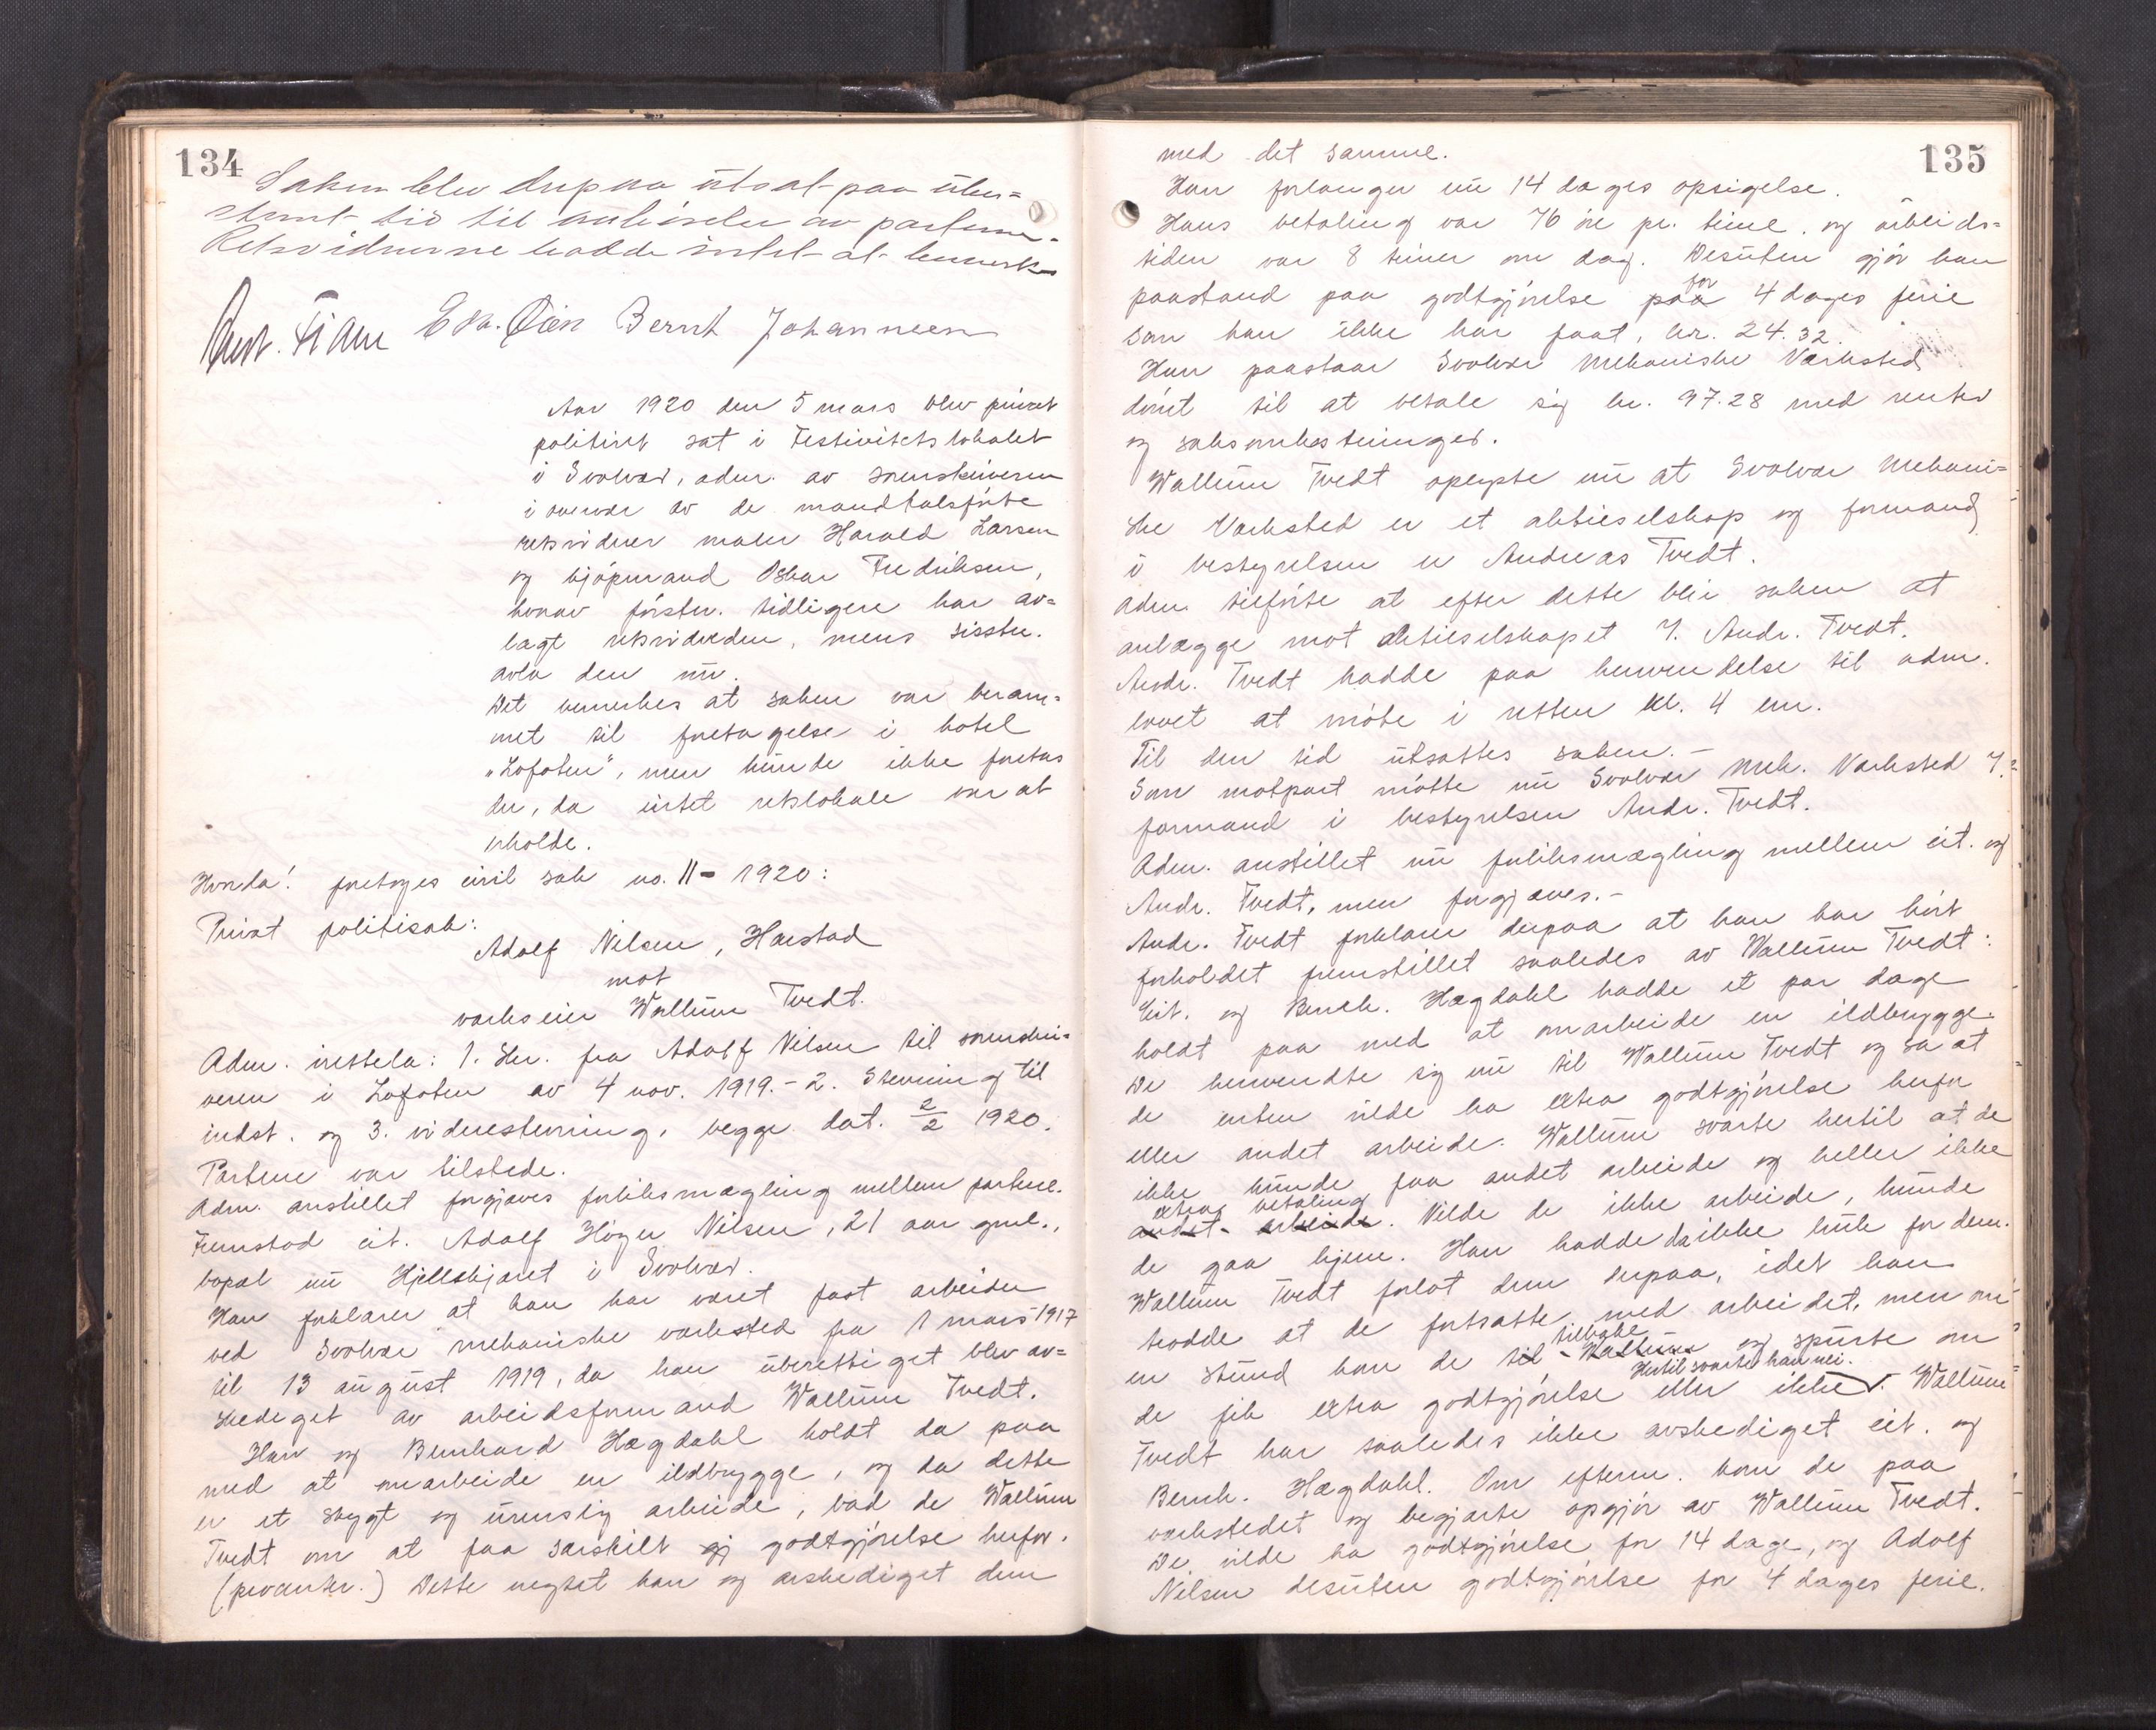 134
Saken blev derpaa utsat paa ube-
stemt tid til avhörelse av parterne.
Retsvidnerne hadde intet at bemerke
E Kr. Öien Bernt Johannesen
Aar 1920 den 5 mars blev privat
politiret sat i Festivitetslokalet
i Svolvær, adm. av sorenskriveren
i overvær av de mandtalsförte
retsvidner maler Harald Larsen
og kjöpmand Oskar Fredriksen,
hvorav förstn. tidligere har av-
lagt retsvidneeden, mens sisstn.
avla den nu.
Det bemerkes at saken var beram-
met til foretagelse i hotel
"Lofoten", men kunde ikke foretas
der, da intet retslokale var at
erholde.
Hvorda! foretoges civil sak no. 11 - 1920:
Privat politisak:
Adolf Nilsen, Harstad
mot
verkseier Wallum Tvedt.
Adm. irettela: 1. Skr. fra Adolf Nilsen til sorenskri-
veren i Lofoten av 4 nov. 1919. - 2. Stevning til
indst. og 3. vidnestevning, begge dat. 2/2 1920.
Parterne var tilstede.
Adm. anstillet forgjæves forliksmægling mellem parterne.
Fremstod cit. Adolf Höger Nilsen, 21 aar gml.,
bopæl nu Hjellskjæret i Svolvær.
Han forklarer at han har været fast arbeider
ved Svolvær mekaniske verksted fra 1 mars 1917
til 13 august 1919, da han uberettiget blev av-
skediget av arbeidsformand Wallum Tvedt.
Han og Bernhard Hægdahl holdt da paa
med at omarbeide en ildbrygge, og da dette
er et stygt og urenslig arbeide, bad de Wallum
Tvedt om at faa særskilt gj godtgjörelse herfor.
(prosenter.) Dette negtet han og avskediget dem
135
med det samme.
Han forlanger nu 14 dages opsigelse.
Hans betaling var 76 öre pr. time og arbeids-
tiden var 8 timer om dag. Desuten gjör han
for
paastand paa godtgjörelse paa 4 dages ferie
som han ikke har faat, kr. 24.32.
Han paastaar Svolvær Mekaniske Verksted
dömt til at betale sig kr. 97.28 med renter
og saksomkostninger.
Wallum Tvedt oplyste nu at Svolvær Mekani-
ske Verksted er et aktieselskap og formand
i bestyrelsen er Andreas Tvedt.
Adm. tilförte at efter dette blir saken at
anlægge mot aktieselskapet v. Andr. Tvedt.
Andr. Tvedt hadde paa henvendelse til adm.
lovet at möte i retten kl. 4 em.
Til den tid utsattes saken. -
Som motpart mötte nu Svolvær Mek. Verksted v.
formand i bestyrelsen Andr. Tvedt.
Adm. anstillet nu forliksmægling mellem cit. og
Andr. Tvedt, men forgjæves. -
Andr. Tvedt forklarer derpaa at han har hört
forholdet fremstillet saaledes av Wallum Tvedt:
Cit. og Bernh. Hægdahl hadde et par dage
holdt paa med at omarbeide en ildbrygge.
De henvendte sig nu til Wallum Tvedt og sa at
de enten vilde ha extra godtgjörelse herfor
eller andet arbeide. Wallum svarte hertil at de
ikke kunde faa andet arbeide og heller ikke
extra betaling
andet arbeide. Vilde de ikke arbeide, kunde
de gaa hjem. Han hadde da ikke bruk for dem.
Wallum Tvedt forlot dem derpaa, idet han
trodde at de fortsatte med arbeidet, men om
tilbake
en stund kom de til Wallum og spurte om
Hertil svarte han nei.
de fik extra godtgjörelse eller ikke. Wallum
Tvedt har saaledes ikke avskediget cit. og
Bernh. Hægdahl. Om efterm. kom de paa
verkstedet og begjærte opgjör av Wallum Tvedt.
De vilde ha godtgjörelse for 14 dage, og Adolf
Nilsen desuten godtgjörelse for 4 dages ferie.